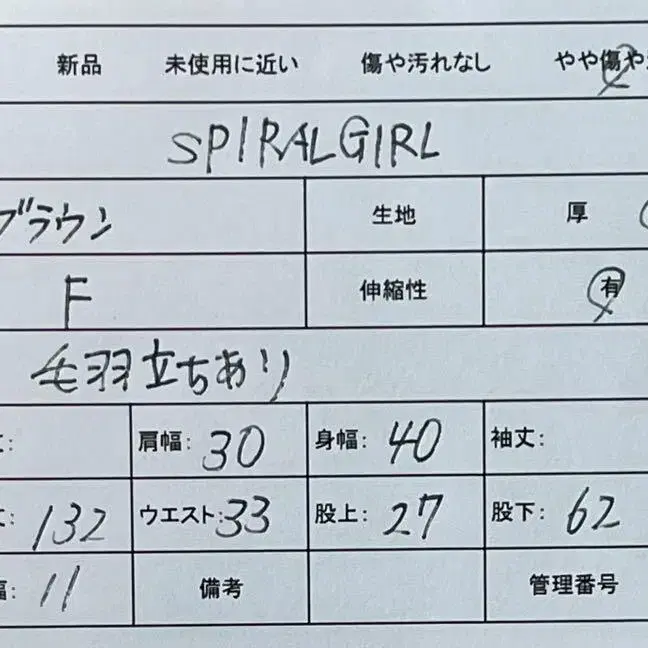 新品 未使用に近い 傷や汚れなし やや傷や
SPIRALGIRL
ブラウン 生地 厚
F 伸縮性 有
毛羽立ちあり
: 肩幅: 30 身幅: 40 袖丈:
: 132 ウエスト: 33 股上: 27 股下: 62
幅: 11 備考 管理番号